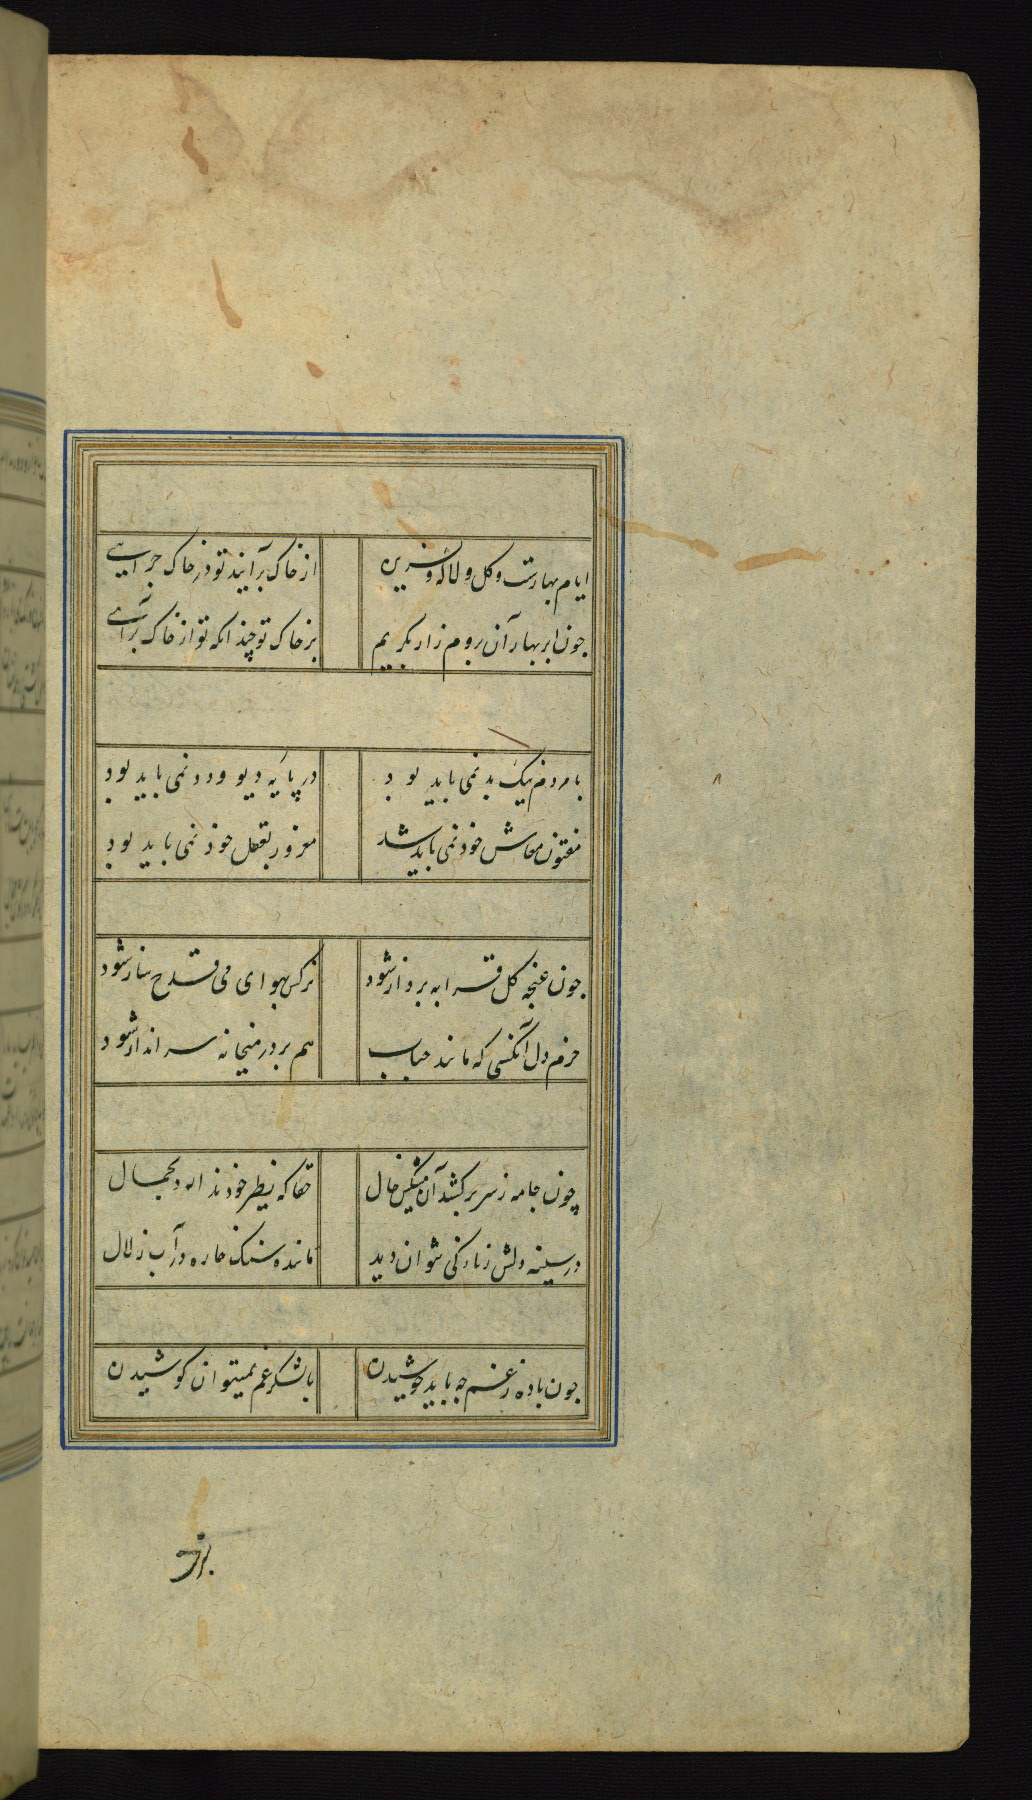 ایام بهارست و کل و لاله و نسرین
از خاک برآیند تو در خاک جرایی
جون ابر بهار آن بروم زار بکریم
بر خاک تو جندانکه تو از خاک برآی
با مردم نیک بد نمی باید بود
در پایه دیو و دد نمی باید بود
مفتون معاش خود نمی باید شد
مغرور بعقل خود نمی باید بود
جون غنجه کل قرابه برواز شود
نرکس بهوای می قدح ساز شود
خرم دل آنکسی که مانند حباب
هم بر در میخانه سر انداز شود
چون جامه ز سر برکشد آن مشکین خال
حقا که نظیر خود ندارد بجمال
در سینه دلش ز نازکی بتوان دید
ماننده سنک خاره در آب زلال
جون باده ز غم جه باید جوشیدن
با لشکر غم نمیتوان کوشیدن